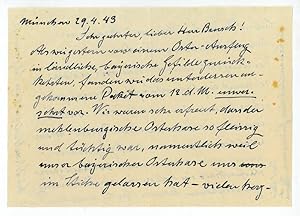 München 29.4.43
Sehr geehrter, lieber Herr Bensch!
Als wir gestern von einem Oster-Ausflug
in ländliche, bayerische Gefilde zurück-
kehrten, fanden wir das unterdessen an-
gekommene Paket vom 12. d. M. unver-
sehrt vor. Wir waren sehr erfreut, dass der
mecklenburgische Osterhase so fleissig
und tüchtig war, namentlich weil
unser bayerischer Osterhase uns
im Stiche gelassen hat – vielen herz-